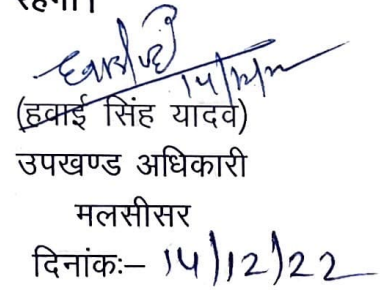 रहेगा।
14/12/22
(हवाई सिंह यादव)
उपखण्ड अधिकारी
मलसीसर
दिनांकः– 14/12/22